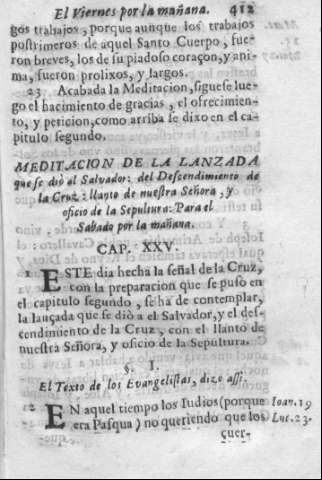 El Viernes por la mañana. 412
gos trabajos, porque aunque los trabajos
postrimeros de aquel Santo Cuerpo, fue-
ron breves, los de su piadoso coraçon, y ani-
ma, fueron prolixos, y largos.
23 Acabada la Meditacion, siguese lue-
go el hacimiento de gracias, el ofrecimien-
to, y peticion, como arriba se dixo en el ca-
pitulo segundo.
MEDITACION DE LA LANZADA
que se diò al Salvador: del Descendimiento de
la Cruz: llanto de nuestra Señora, y
oficio de la Sepultura: Para el
Sabado por la mañana.
CAP. XXV.
1 ESTE dia hecha la señal de la Cruz,
con la preparacion que se puso en
el capitulo segundo, se ha de contemplar,
la lançada que se diò a el Salvador, y el des-
cendimiento de la Cruz, con el llanto de
nuestra Señora, y oficio de la Sepultura.
§. I.
El Texto de los Evangelistas, dize assi.
2 EN aquel tiempo los Iudios (porque Ioan. 19
era Pasqua) no queriendo que los Luc. 23.
cuer-